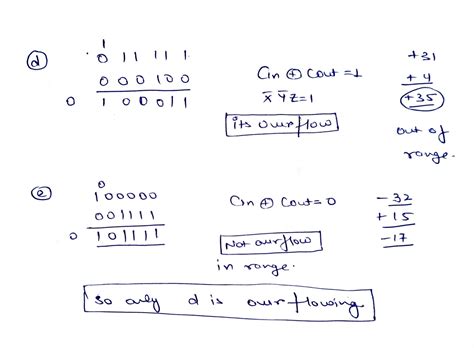 (d)
1
0 11 11 1
000100
0 100011
Cin ⊕ Cout = 1
X̄ Ȳ Z = 1
its ourflow
+31
+ 4
+35
out of
range.
(e)
0
100000
001111
0 101111
Cin ⊕ Cout = 0
Not ourflow
in range.
- 32
+ 15
- 17
so only d is our flowing